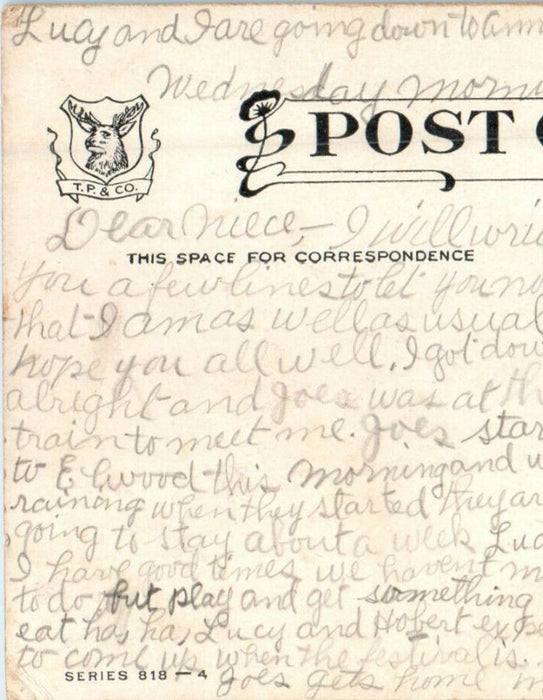 Lucy and I are going down to Ann
Wednesday morn
POST
T.P. & CO.
Dear Niece,- I will wri
THIS SPACE FOR CORRESPONDENCE
you a few lines to let you no
that I am as well as usual
hope you all well. I got dow
alright and Joes was at th
train to meet me. Joes star
to Elwood this morning and w
raining when they started they ar
going to stay about a week Luc
I have good times we havent m
to do but play and get something
eat ha, ha, Lucy and Hobert expe
to come up when the festival is.
SERIES 818 — 4
Joes gets home m